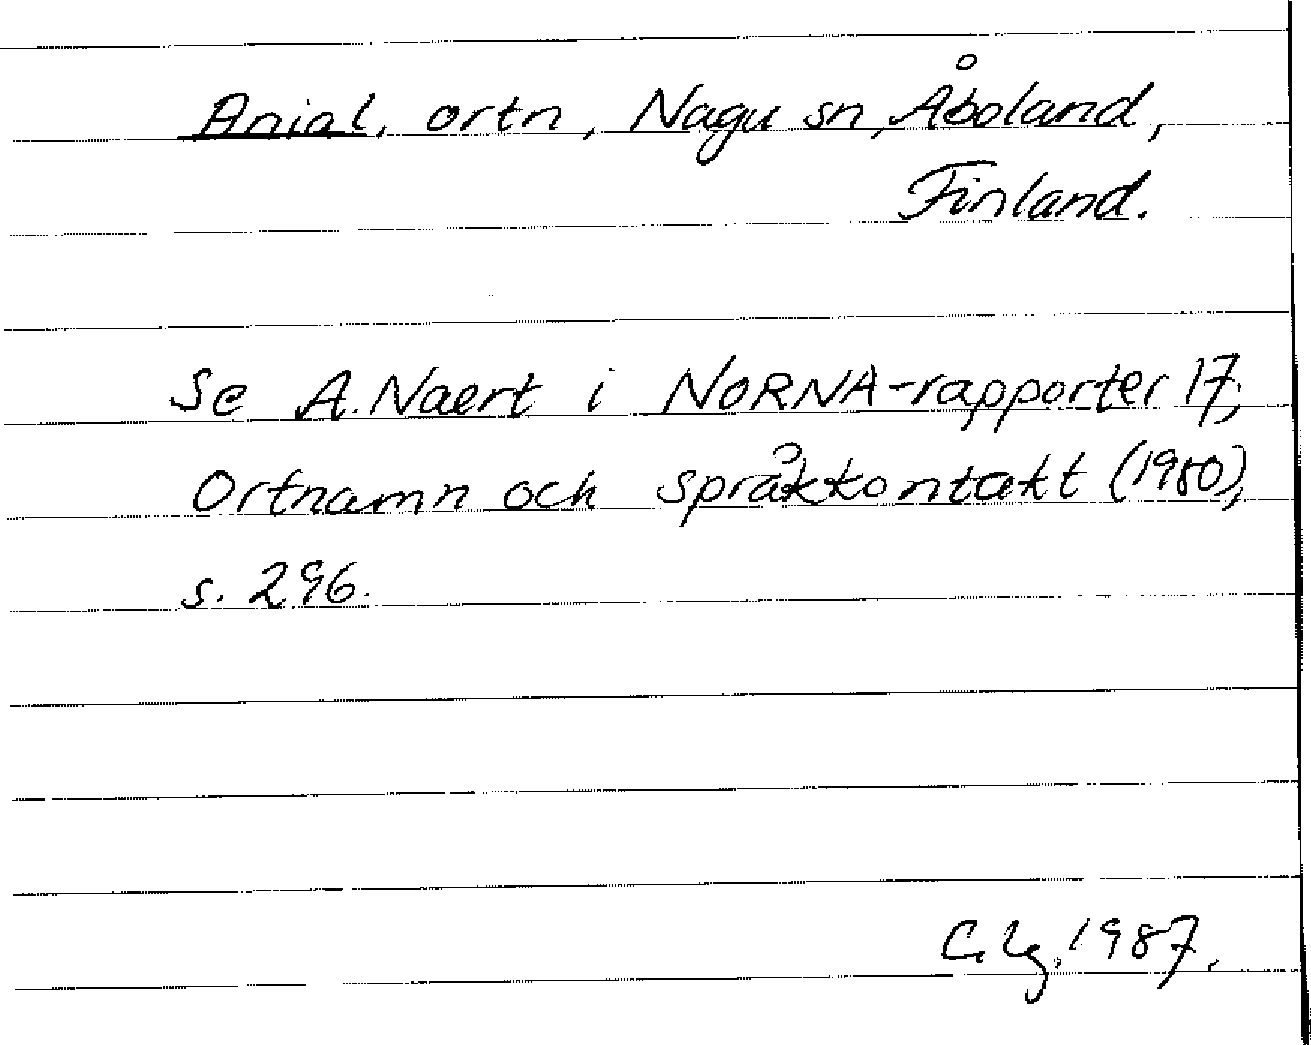 Anial, ortn, Nagu sn, Åboland,
Finland.
Se A. Naert i NORNA-rapporter 17,
Ortnamn och språkkontakt (1980),
s. 296.
1987.